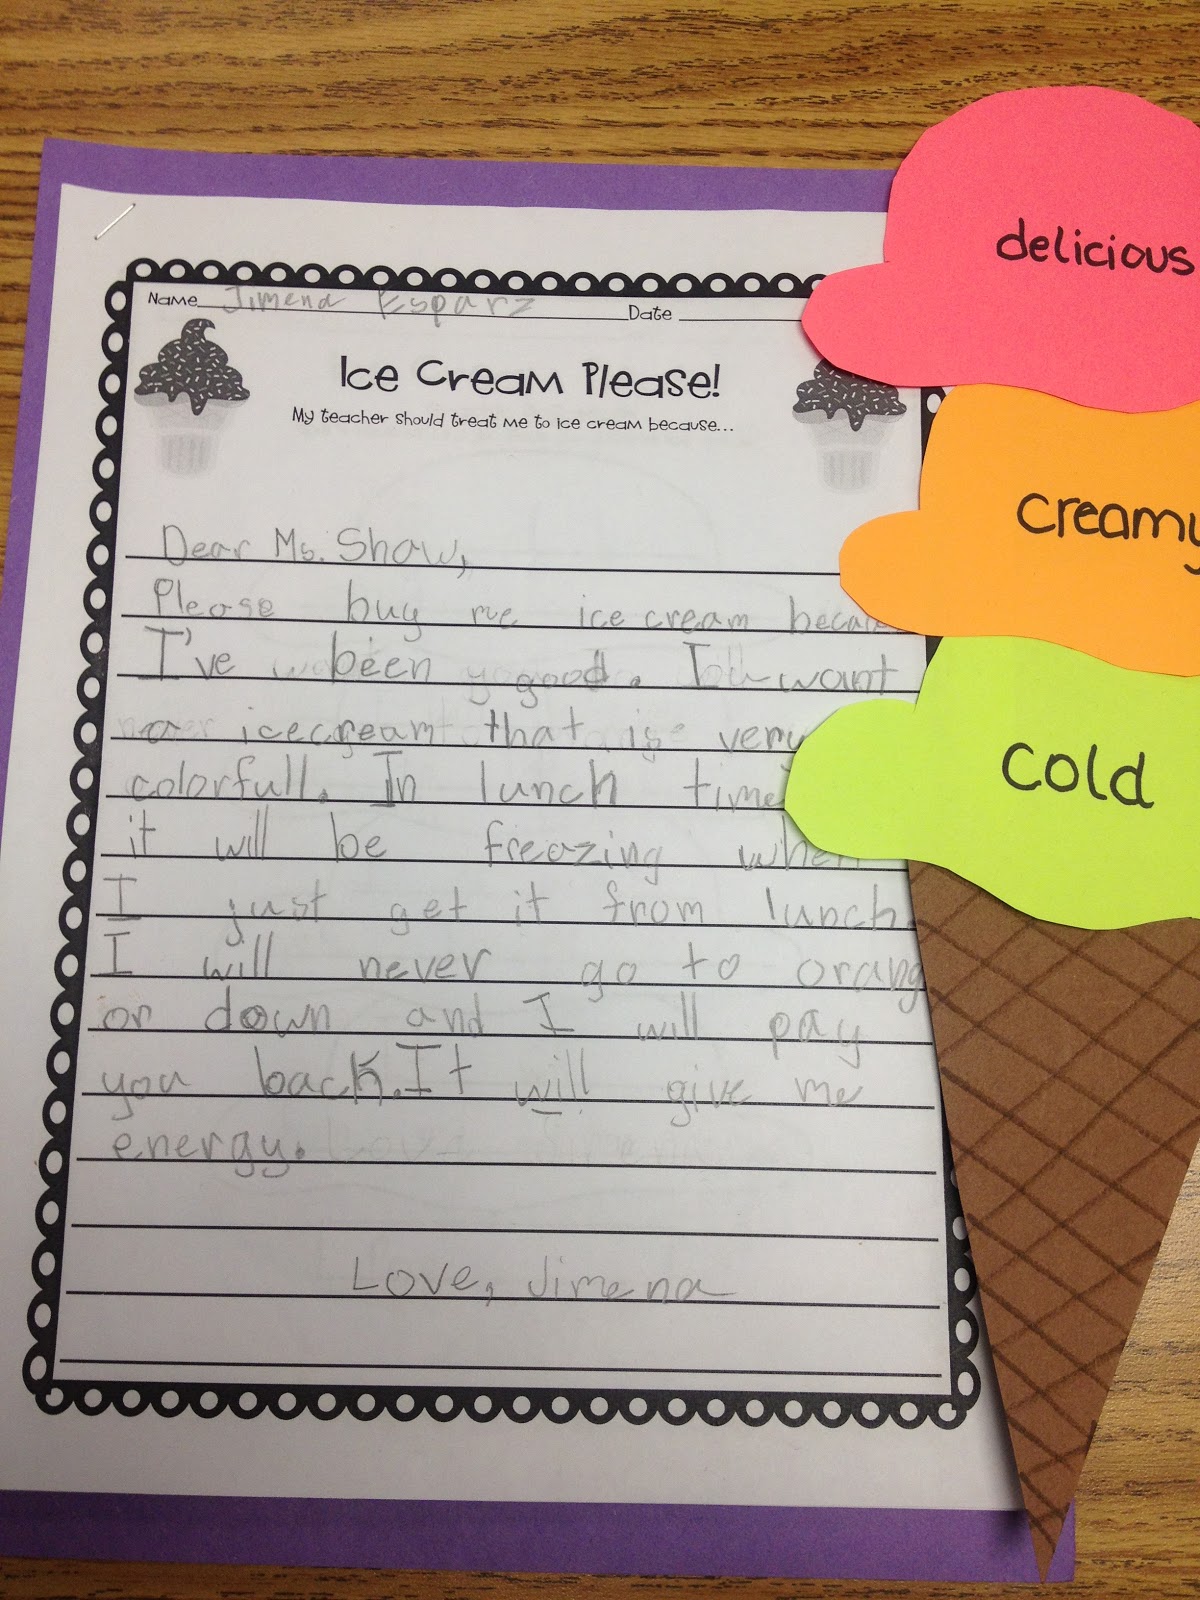 Name Jimena Esparz Date
Ice Cream Please!
My teacher should treat me to ice cream because...
Dear Ms. Show,
Please buy me ice cream becau
I've been good. I want
a icecream that is very
colorfull. In lunch time
it will be freazing when
I just get it from lunch.
I will never go to orang
or down and I will pay
you back. It will give me
energy.
Love, Jimena
delicious
creamy
cold